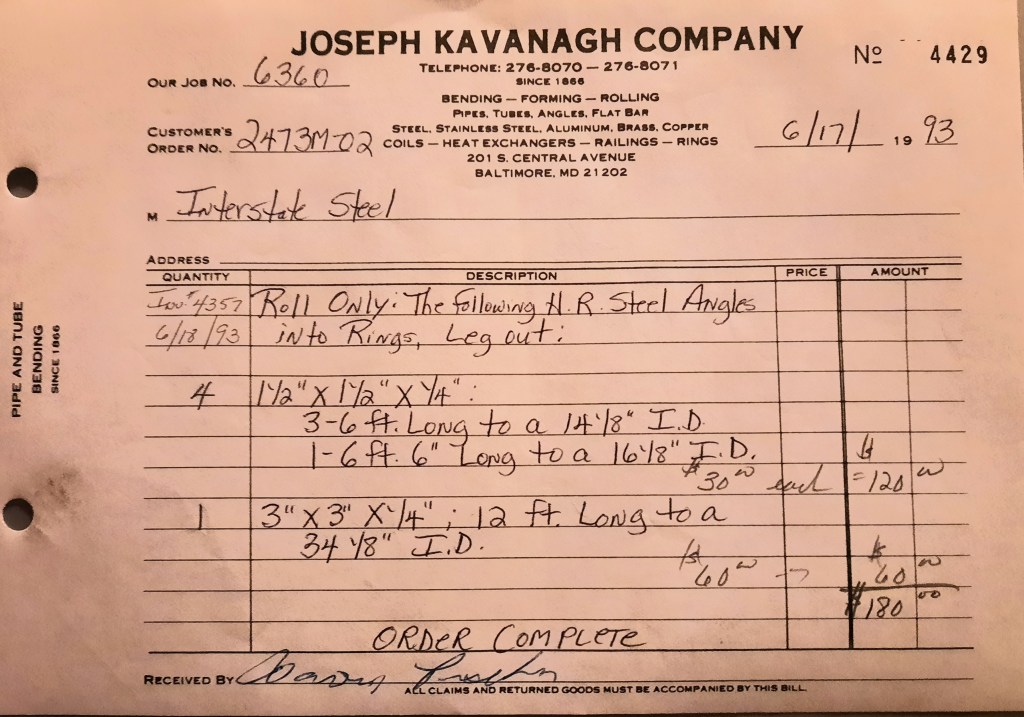 JOSEPH KAVANAGH COMPANY
Nº 4429
TELEPHONE: 276-8070 — 276-8071
OUR JOB NO. 6360
SINCE 1866
BENDING — FORMING — ROLLING
PIPES, TUBES, ANGLES, FLAT BAR
CUSTOMER'S ORDER NO. 2473M-02
STEEL, STAINLESS STEEL, ALUMINUM, BRASS, COPPER
COILS — HEAT EXCHANGERS — RAILINGS — RINGS
6/17/ 1993
201 S. CENTRAL AVENUE
BALTIMORE, MD 21202
M Interstate Steel
ADDRESS
QUANTITY DESCRIPTION PRICE AMOUNT
Inv# 4357 Roll Only: The following H.R. Steel Angles
6/18/93 into Rings, Leg out:
4 1 1/2" X 1 1/2" X 1/4" :
3-6 ft. Long to a 14 1/8" I.D.
1-6 ft. 6" Long to a 16 1/8" I.D.
$30 00 each $ =120 00
1 3" X 3" X 1/4" ; 12 ft. Long to a
34 1/8" I.D.
$60 00 $60 00
$180 00
ORDER COMPLETE
RECEIVED BY
ALL CLAIMS AND RETURNED GOODS MUST BE ACCOMPANIED BY THIS BILL.
PIPE AND TUBE
BENDING
SINCE 1866